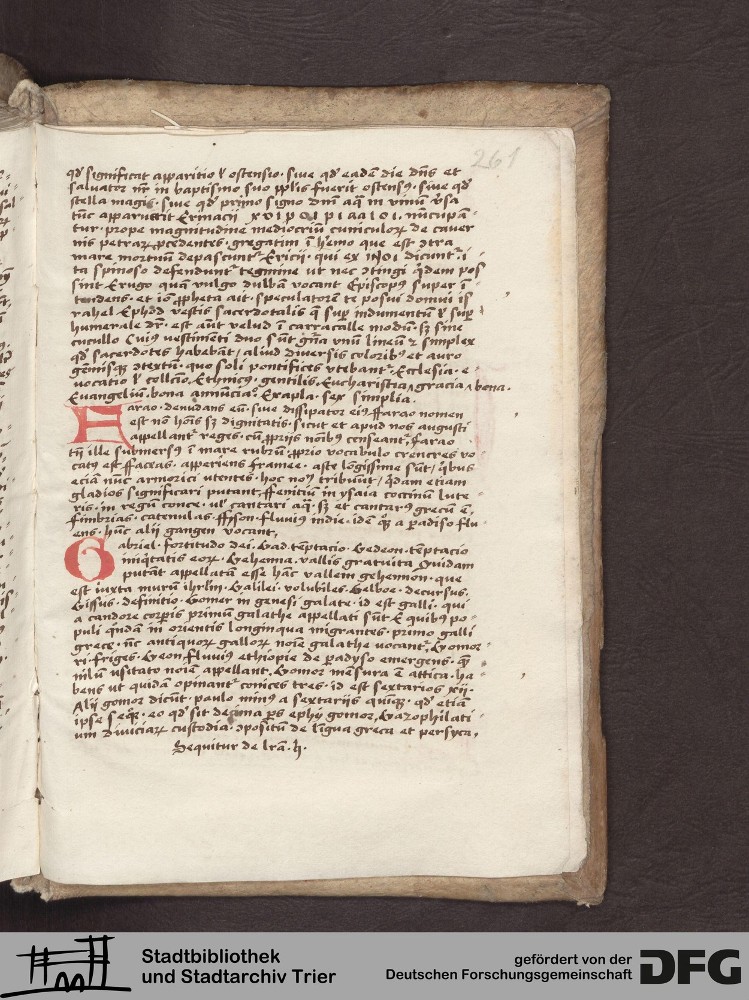 261
qd significat apparitio l ostensio · sive qd eadē die dn̄s et
salvator nr̄ in baptismo suo pplis fuerit ostensꝰ · sive qd
stella magis · sive qd primo signo dnī aq̄ in vinū v̄sa
tūc apparuerit Ermacii nūcupā
tur · prope magnitudine mediocriū cuniculoꝝ de caver
nis petraꝝ ꝓcedentes · gregatim ī h̄emo que est ↄtra
mare mortuū depascunt᷑ Ericii · qui ex dicunt᷑ · i
ta spinoso defendunt᷑ tegmine ut nec ↄtingi q̇dem pos
sint Erugo quā vulgo vocant Episcopꝰ super ī
tendens · et iō ꝓpheta ait · speculatorē te posui domui is
rahel Ephdd vestis sacerdotalis q̄ sup̄ indumentū l sup̄
humerale dr̄ · est aūt velud ī carracalle modū · sꝫ sine
cucullo Cuiꝰ vestimēti duo sūt gn̄a vnū lineū ⁊ simplex
qd sacerdotes habebāt / aliud diversis coloribꝰ et auro
gēmisqꝫ ↄtextū · quo soli pontifices vtebant᷑ Ecclesia · e ·
vocatio l collc̄io · Ethnicꝰ · gentilis · Eucharistia gracia bona ·
Euangeliū · bona annūcia᷑ · Exapla · sex simplia ·
Farao · denudans eū · sive dissipator eiꝰ ffarao nomen
est nō hōis sꝫ dignitatis · sicut et apud nos augusti
appellant᷑ reges · cū ꝓprijs noībꝰ censeant᷑ · Farao
tn̄ ille submersꝰ ī mare rubrū ꝓprio vocabulo crencres vo
catꝰ est ffaceas · apperiens framee · aste lōgissime sūt / q̇bus
eciā nūc armorici utentes · hoc noīs tribuūt / q̇dam etiam
gladios significari putant ffeniciū in ysaia coccinū lute
ris · in regū conce · ul cantari aq̄ · sꝫ et cantarꝰ grecū ē,
fimbrias · catenulas · ffyson · fluviꝰ indie · idē q̄ a padiso flu
ens · hūc alij gangen vocant,
Gabriel · fortitudo dei · Gad · tēptacio · Gedeon · tēptacio
iniq̇tatis eoꝝ · Gehenna · vallis gratuita Quidam
putāt appellatū esse hāc vallem gehennon · que
est iuxta murū ihrlm̄ · Galilei · volubiles · Gelboe · decursus ·
Gissus · definitio · Gomer in genesi galate · id est galli · qui
a candore corpis primū galathe appellati sūt E quibꝰ po
puli q̇ndā in orientis longinqua migrantes · primo galli
grece · nc̄ antiquoꝝ galloꝝ noīe galathe vocant᷑ · Gomor
ri · friges · Geon · fluviꝰ ethiopie de padyso emergens · q̄
nilū usitato noīe appellant, Gomor mēsura ē attica · ha
bens ut quidā opinant᷑ conices tres · id est sextarios xij ·
Alij gomor dicūt · paulo minꝰ a sextarijs quīqꝫ · qd etiā
ipse seq̄r · eo qd sit decima ps ephy gomor, Gazophilati
um diviciaꝝ custodia · ↄpositū de līgua greca et persyca ·
Sequitur de lrā · h ·
Stadtbibliothek
und Stadtarchiv Trier
gefördert von der
Deutschen Forschungsgemeinschaft
DFG